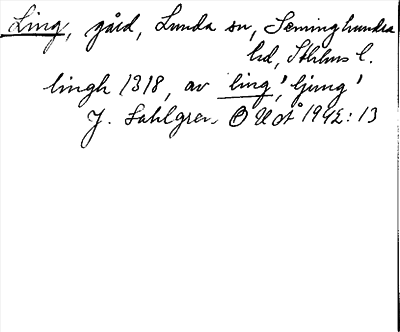 Ling, gård, Lunda sn, Seminghundra
hd, Sthlms l.
lingh 1318, av ling 'ljung'
J. Sahlgren OUÅ 1942:13